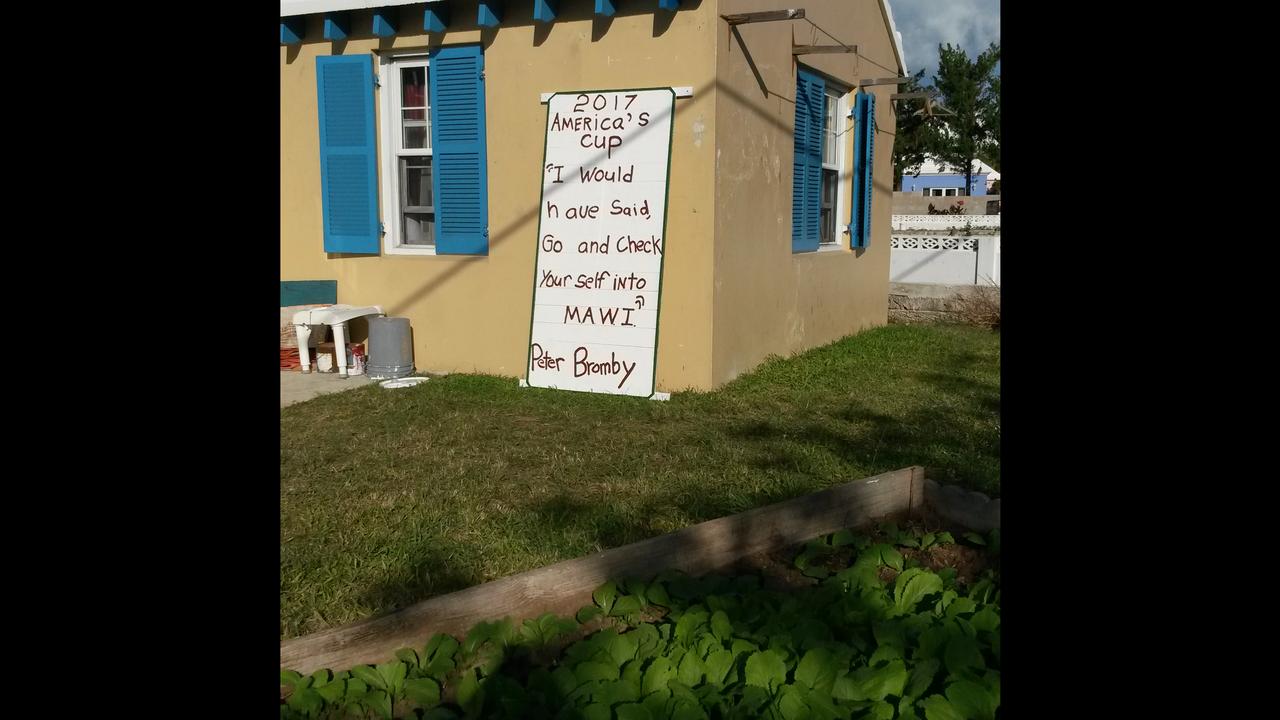 2017
AMERICA'S
CUP
"I Would
have Said,
Go and Check
Your self into
MAWI."
Peter Bromby